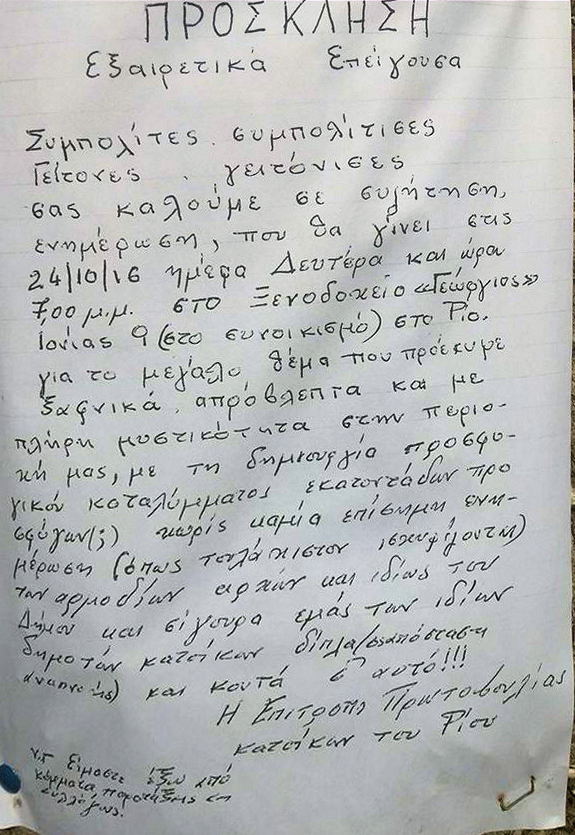 ΠΡΟΣΚΛΗΣΗ
Εξαιρετικά Επείγουσα
Συμπολίτες. συμπολίτισες
Γείτονες. γειτόνισες
σας καλούμε σε συζήτηση,
ενημέρωση, που θα γίνει στις
24/10/16 ημέρα Δευτέρα και ώρα
7,00 μ.μ. στο Ξενοδοχείο «Γεώργιος»
Ιονίας 9 (στο συνοικισμό) στο Ρίο.
για το μεγάλο θέμα που προέκυψε
ξαφνικά, απρόβλεπτα και με
πλήρη μυστικότητα στην περιο-
χή μας, με τη δημιουργία προσφυ-
γικού καταλύμματος εκατοντάδων προ
σφύγων(;) χωρίς καμία επίσημη ενη-
μέρωση (όπως τουλάχιστον ισχυρίζονται)
των αρμοδίων αρχών και ιδίως του
Δήμου και σίγουρα εμάς των ιδίων
δημοτών κατοίκων δίπλα(σε απόσταση
αναπνοής) και κοντά σ' αυτό!!!
Η Επιτροπή Πρωτοβουλίας
κατοίκων του Ρίου
Υ.Γ Είμαστε έξω από
κόμματα, παρατάξεις
συλλόγους.